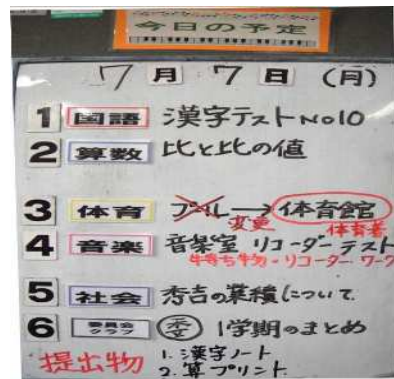 今日の予定
7月7日(月)
1 国語 漢字テストNo10
2 算数 比と比の値
3 体育 プール→体育館
変更 体育着
4 音楽 音楽室 リコーダーテスト
持ち物・リコーダー ワーク
5 社会 秀吉の業績について
6 委員会 クラブ 委 1学期のまとめ
提出物 1. 漢字ノート
2. 算プリント